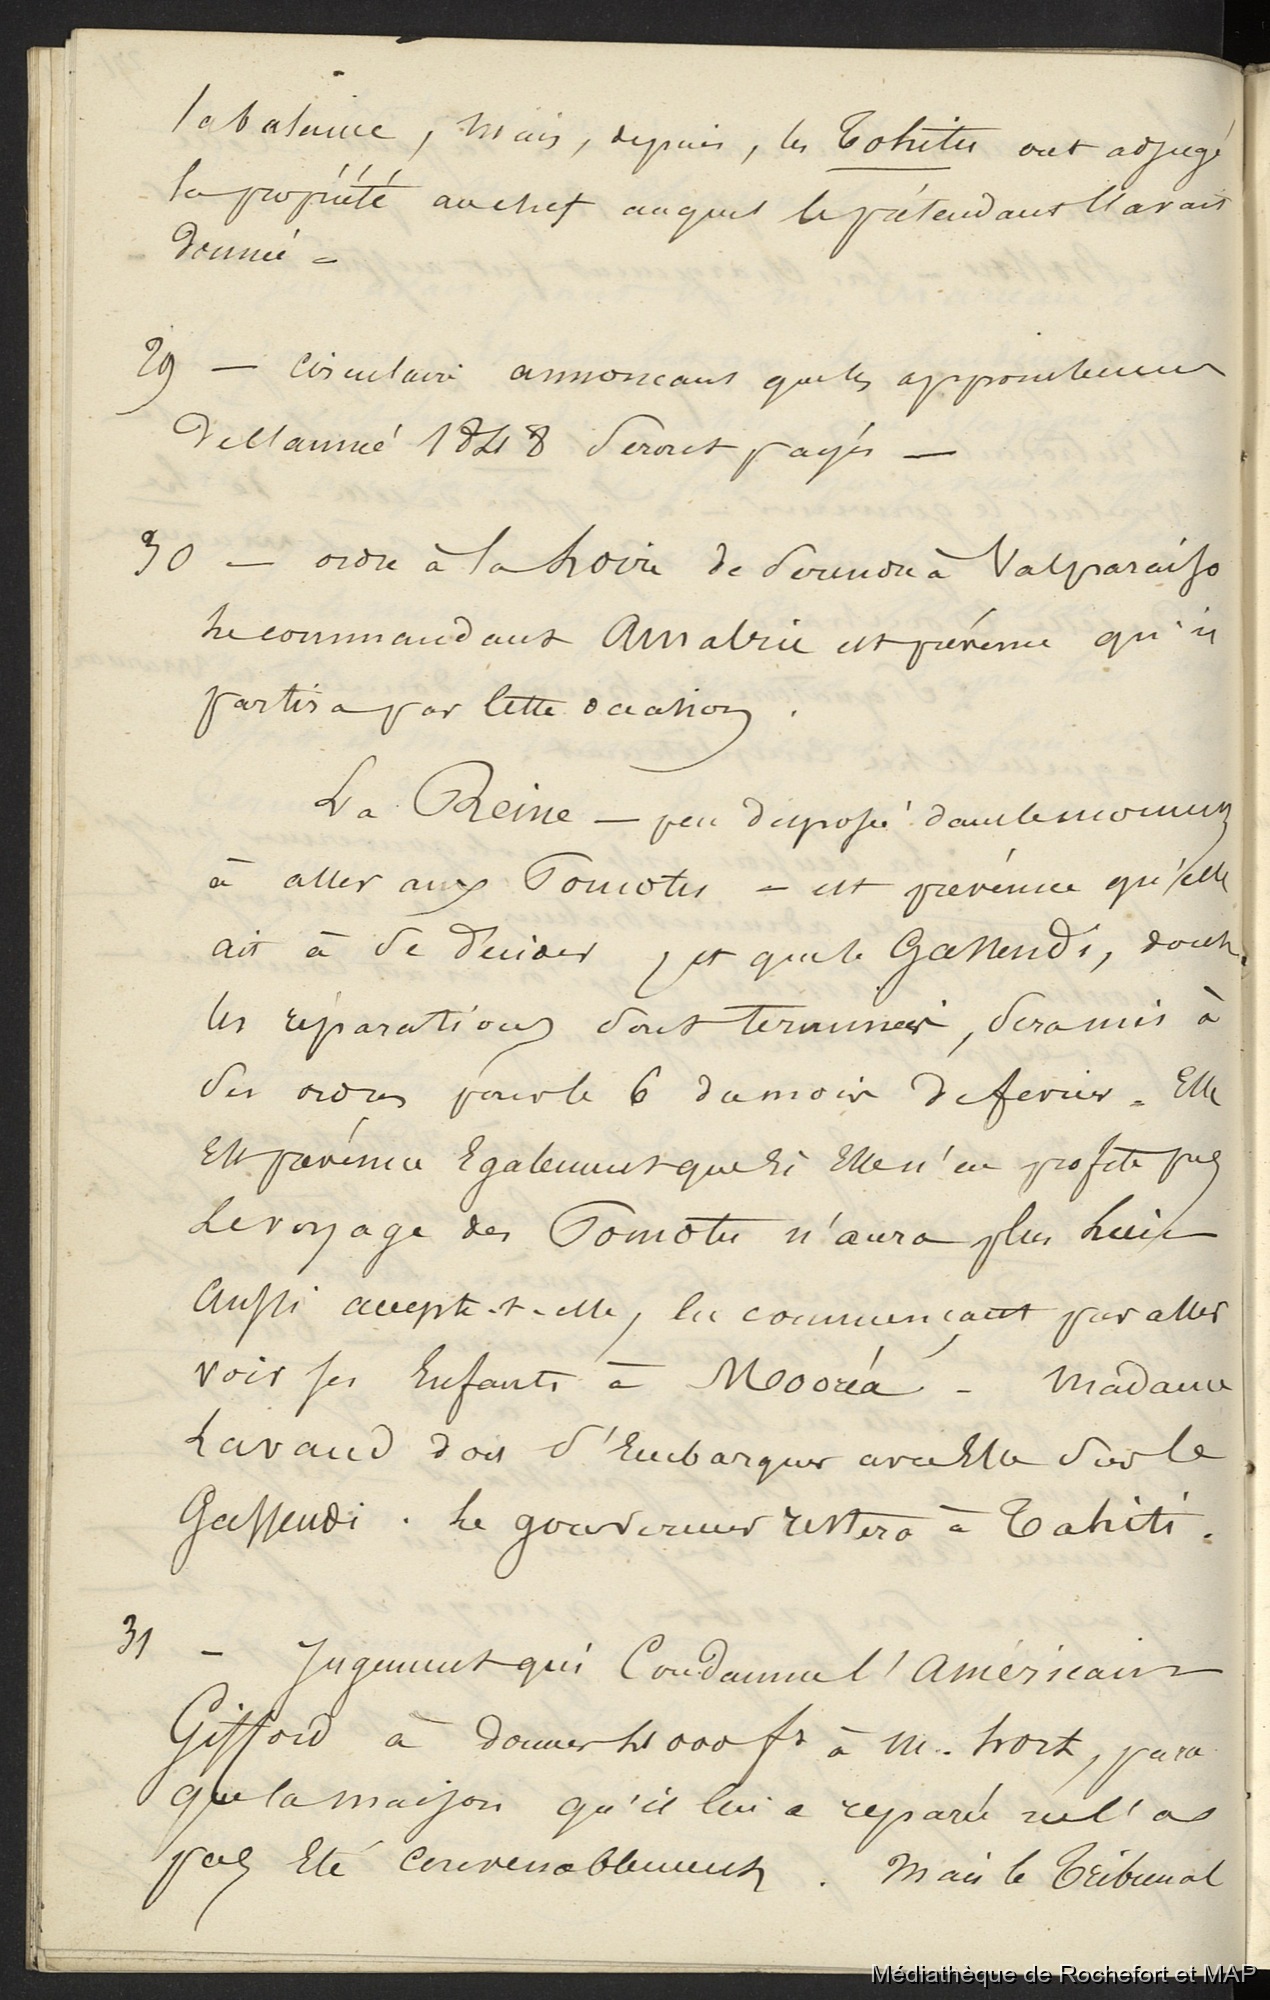 la balance, mais, depuis, les Tohitu ont adjugé
la propriété au chef auquel le prétendant l'avait
donnée =
29 — Circulaire annonçant que les appointemens
de l'année 1848 seront payés —
30 — ordre à la Loire de se rendre à Valparaiso
Le commandant Amalric est prévenu qu'il
partira par cette occasion.
La Reine — peu disposée dans le moment
à aller aux Pomotu — est prévenue qu'elle
ait à se décider, et que le Gassendi, dont
les réparations sont terminées, sera mis à
ses ordres pour le 6 du mois de fevrier = Elle
Est prévenue Egalement que si Elle n'en profite pas
Le voyage des Pomotu n'aura plus Lieu
Aussi accepte-t-elle, en commençant par aller
voir ses Enfants à Mooréa — Madame
Lavaud doit s'Embarquer avec Elle sur le
Gassendi. Le gouverneur restera à Tahiti.
31 — Jugement qui Condamne l'Américain
Gifford à donner 4000 fs à M. Hort, parce
que la maison qu'il lui a reparée ne l'a
pas Eté convenablement. Mais le Tribunal
Médiathèque de Rochefort et MAP